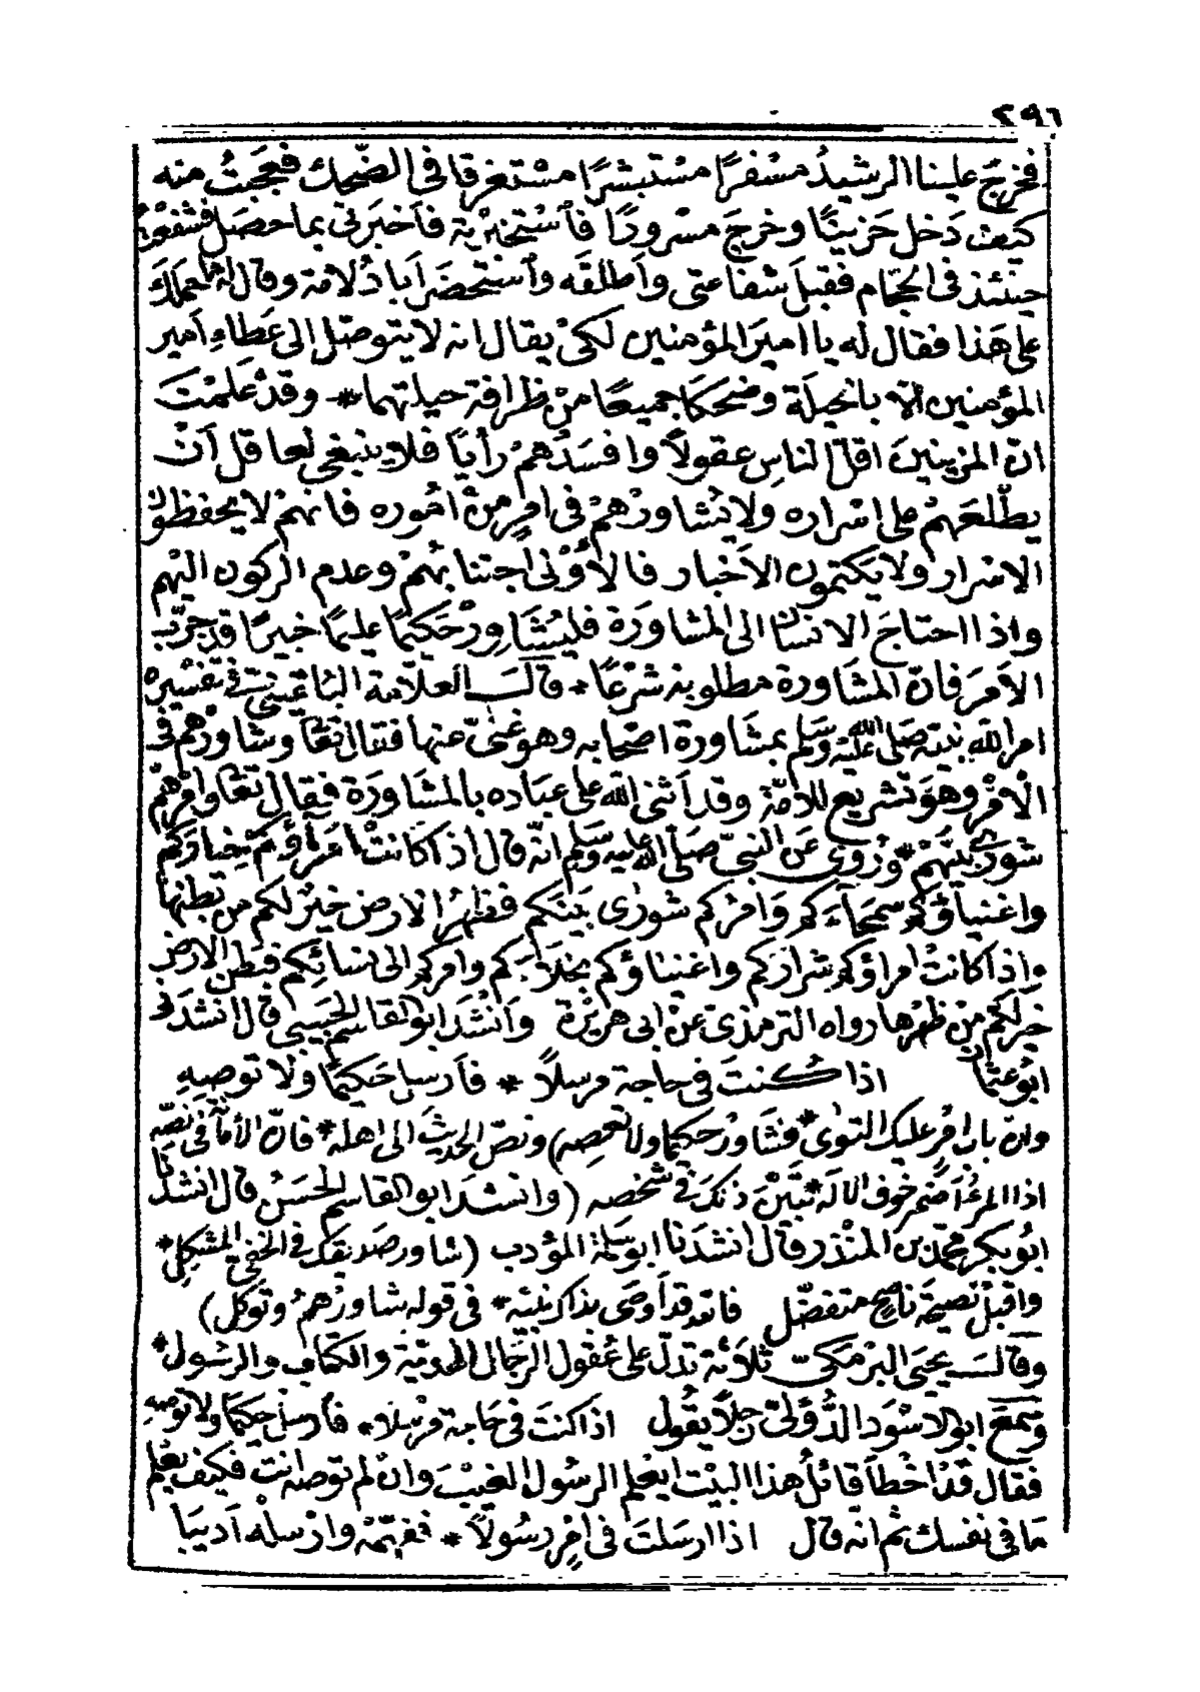 ٢٩٦
فخرج علينا الرشيدُ مسْفرًا مسْتبشرًا مسْتغرقا فى الضّحك فعَجبتُ منه
كيف دَخل حَزينًا وخرجَ مسْرورًا فاسْتخبرته فأخبرنى بما حصَل فشفعْتُ
حينئذ فى الحجّام فقبلَ شفاعتى وأطلقَه واسْتحضَرَ أبا دُلامة وقال له ما حملك
على هَذا فقال له يا اميرَ المؤمنين لكىْ يقال انه لا يتوصّل إلى عَطاءِ أمير
المؤمنين الا بالحيلَة وضحكا جميعًا منْ ظرافة حيلتهما * وقدْ علمْتَ
ان المزينينَ اقلّ الناسِ عقولاً وافسَدُهمْ رأيًا فلا ينبغى لعاقل أنْ
يطّلعَهمْ على اسْراره ولا يُشاورْهمْ فى امرٍ منْ امُوره فانهمْ لا يحفظون
الاسْرار ولا يَكتمون الأخبار فالأوْلى اجتنابُهمْ وعدم الركون اليْهم
واذا احتاجَ الانسان الى المشاوَرَة فليُشَاورْ حَكيمًا عليمًا خبيرًا قد جرّب
الأمرَ فانّ المشَاورة مطلوبة شرْعًا * قالَ العلاّمة فى تفسيره
امر الله نبيّه صَلى الله عليْه وسَلم بمشَاورة اصْحابه وهو غنىّ عنها فقال تعَالى وشاورْهم فى
الأمْر وهوَ تشريع للأمّة وقد أثنى الله على عبَاده بالمشَاورَة فقال تعَالى وامْرهمْ
شورى بيْنهمْ * ورُوىَ عَن النبىّ صَلى الله عليه وسَلم انّه قال اذا كانتْ امَرآؤكمْ خيَاركمْ
واغنياؤكم سمحَآءَكم وَامْركم شورى بَيْنكم فظهرُ الارض خيْر لكم من بَطنها
واذا كانتْ امراؤكم شرارَكم واغنياؤكم بخلآءَكم وامركم الى نسَائكم فبَطن الارض
خيْر لكم من ظهْرها رواه الترمذىّ عنْ ابى هريْرة وأنْشدَ ابو القاسم الحبيبى قال انشدنى
ابُو عثمان اذا كُنتَ فى حاجة مرسلاً * فأرسل حَكيمًا ولا توصِهِ
وان باب امْرٍ عليك التوى * فشَاورْ حكيمًا ولا تعْصِهِ) ونصّ الحديثَ الى اهله * فانّ الأمانة فى نصّه
اذا المرءُ أضمَر خوفَ الاله * تبَيّنَ ذلك فى شخصه (وانشدَ ابو القاسم الحسَنُ قال انشدنا
ابُو بكرٍ محمّد بن المنْذر قال انشدَنا ابو سَلمة المؤدب (شاور صديقك فى الخفىّ المشكلِ *
واقبَلْ نصيحَة ناصحٍ متفضّل فالله قدْ أوصَى بذاك نبيّه * فى قوله شاورْهمُ وتوكّل)
وقالَ يحيَى البرْمكىّ ثلاثة تدلّ على عُقول الرّجال الهديّة والكتاب والرسُول *
وسَمعَ ابو الاسْوَد الدُّؤلىّ رَجلاً يقُول اذا كنتَ فى حَاجة مرْسلاً * فأرسل حكيمًا ولا توصهِ
فقال قدْ اخْطأ قائلُ هذا البيْت ايعْلم الرسُول الغيْبَ وانْ لم توصه انتَ فكيفَ يعْلم
مَا فى نفسك ثم انه قال اذا ارسَلتَ فى امْرٍ رسُولاً * ففهّمْه وارْسلْه أدِيبَا